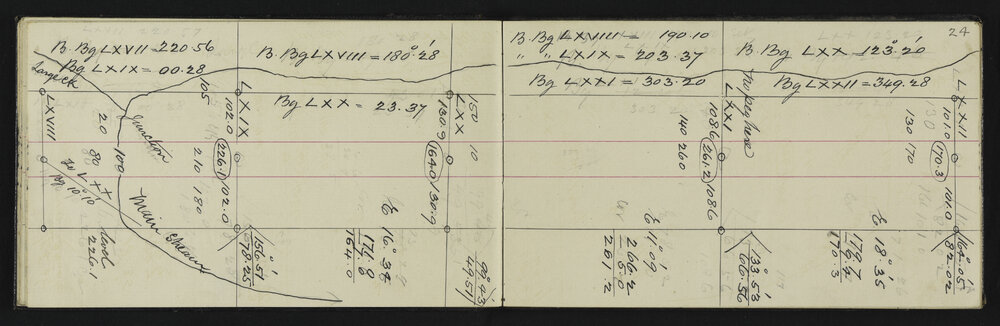 B. Bg LXVII = 220 56
Bg LXIX = 00.28
B. Bg LXVIII = 180° 28'
Bg LXX = 23.37
Large ck
LXVIII
20
80
100
Junction
Main stream
level
226.1
105
LXIX
102.0
226.1
102.0
210
180
156° 51'
78.25
150
LXX
130.9
10
1640
130.9
E 16° 34'
171.8
7.8
164.0
99° 43'
49 51
24
B. Bg LXVIII = 190.10
" " LXIX = 203.37
Bg LXXI = 303.20
B. Bg LXX = 123° 20'
Bg LXXII = 349.28
No peg here
LXXI
1086
140
260
261.2
1086
E 11° 09'
266.2
5.0
261.2
133° 53'
66.56
LXXII
101.0
130
170
170.3
101.0
E 18° 35'
179.7
9.4
170.3
164° 05'
82.02